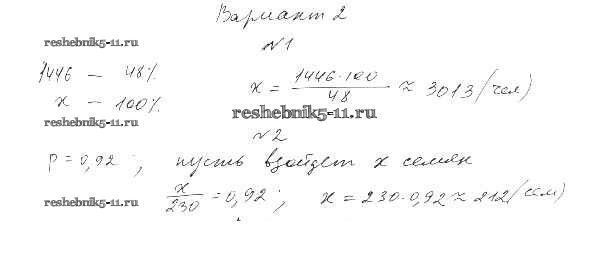 Вариант 2
reshebnik5-11.ru
№1
1446 — 48%
x — 100%
x = 1446·100 / 48 ≈ 3013 (чел)
reshebnik5-11.ru
reshebnik5-11.ru
№2
P = 0,92 ; пусть взойдет x семян
x / 230 = 0,92 ; x = 230·0,92 ≈ 212 (сем)
reshebnik5-11.ru